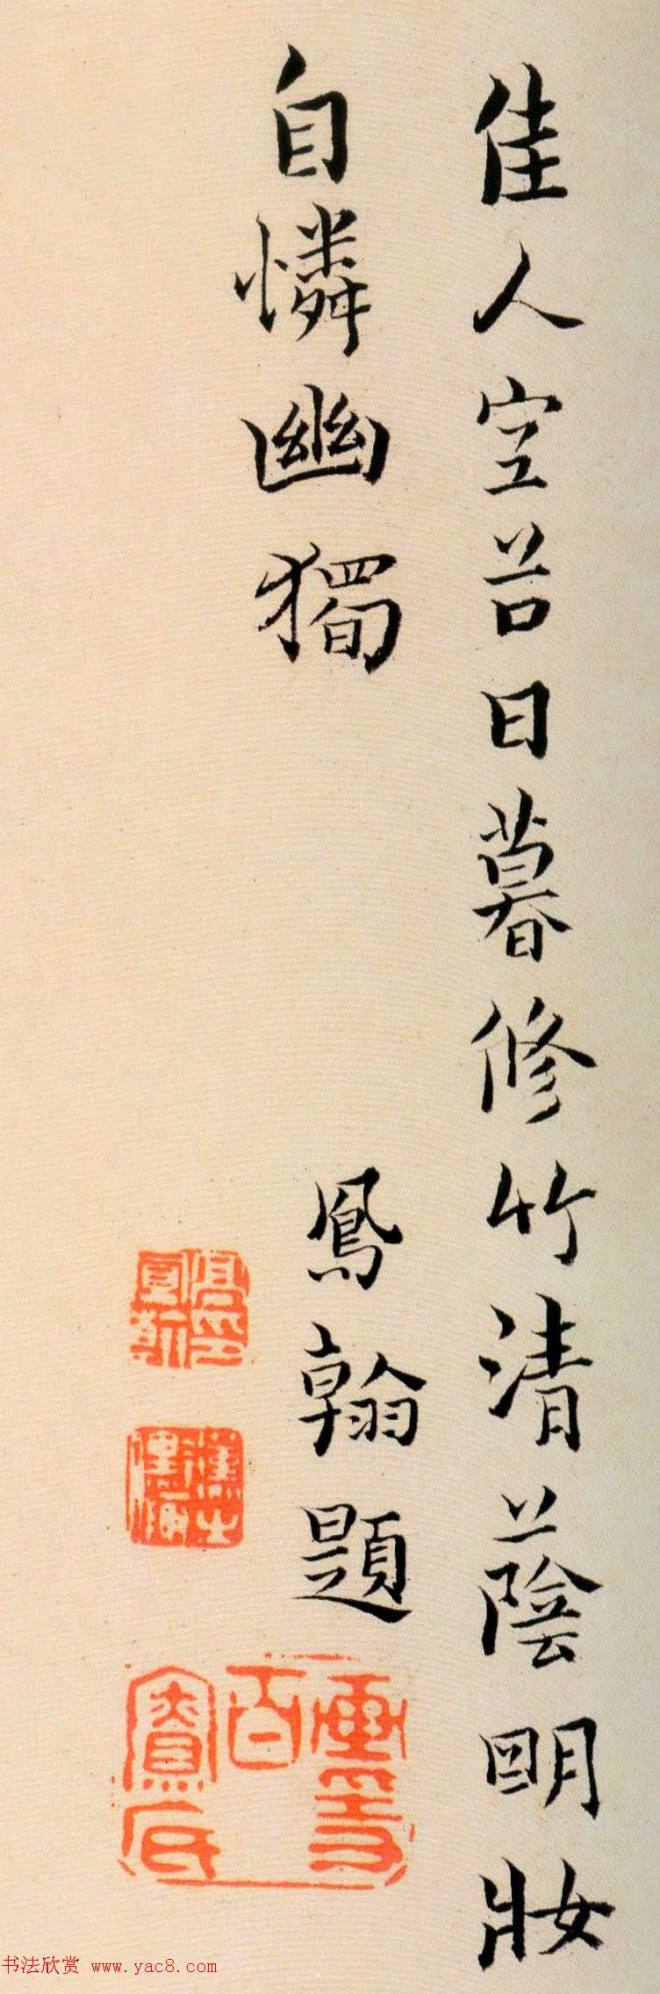 佳人空谷日暮修竹清蔭明妝
自憐幽獨
鳳翰題
书法欣赏 www.yac8.com